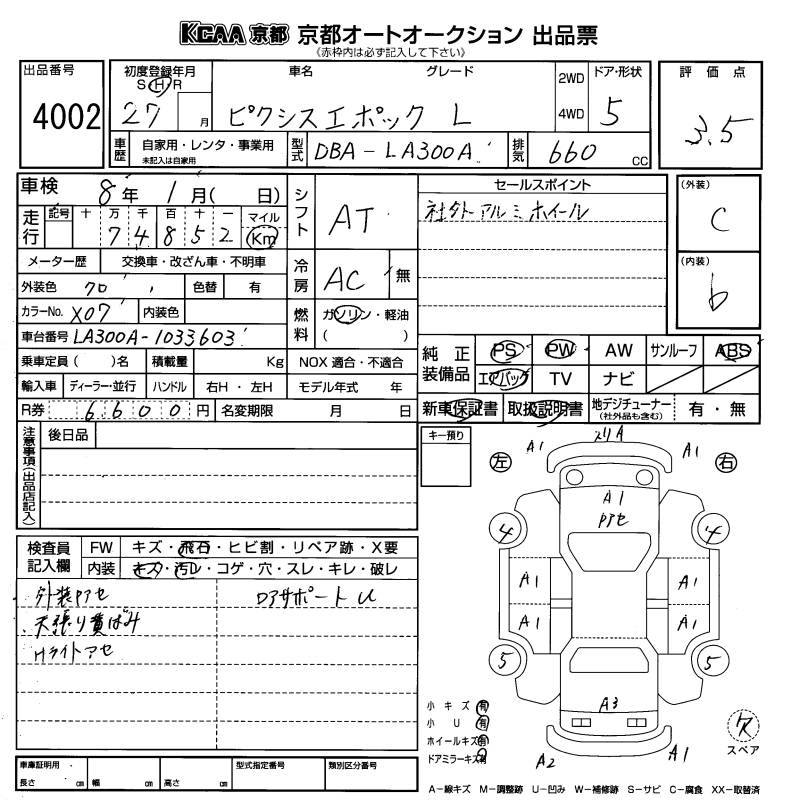 KCAA 京都 京都オートオークション 出品票
《赤枠内は必ず記入して下さい》
出品番号 4002
初度登録年月 S H R 27 月
車名 グレード ピクシスエポック L
2WD 4WD
ドア・形状 5
評価点 3.5
車歴 自家用・レンタ・事業用 未記入は自家用
型式 DBA-LA300A
排気 660 CC
車検 8年 1月( 日)
シフト AT
セールスポイント
社外アルミホイール
(外装) C
(内装) b
走行 記号 十 万 千 百 十 一 マイル Km
7 4 8 5 2
メーター歴 交換車・改ざん車・不明車
冷房 AC 無
外装色 クロ 色替 有
カラーNo. X07 内装色
燃料 ガソリン・軽油 ( )
車台番号 LA300A-1033603
乗車定員( )名 積載量 Kg NOX 適合・不適合
輸入車 ディーラー・並行 ハンドル 右H・左H モデル年式 年
R券 6600円 名変期限 月 日
純正装備品 PS PW AW サンルーフ ABS
エアバッグ TV ナビ
新車保証書 取扱説明書 地デジチューナー (社外品も含む) 有・無
注意事項(出品店記入)
後日品
キー預り
検査員記入欄 FW キズ・飛石・ヒビ割・リペア跡・X要
内装 キズ・汚レ・コゲ・穴・スレ・キレ・破レ
外装アセ ロアサポートU
天張り黄ばみ
Hライトアセ
左 右
A1 スリA A1
A1
アセ
4 4
A1 A1
A1 A1
5 5
A3
A2 A1
小キズ 有
小U 有
ホイールキズ 有
ドアミラーキズ 有
欠
スペア
車庫証明用 長さ cm 幅 cm 高さ cm 型式指定番号 類別区分番号
A-線キズ M-調整跡 U-凹み W-補修跡 S-サビ C-腐食 XX-取替済